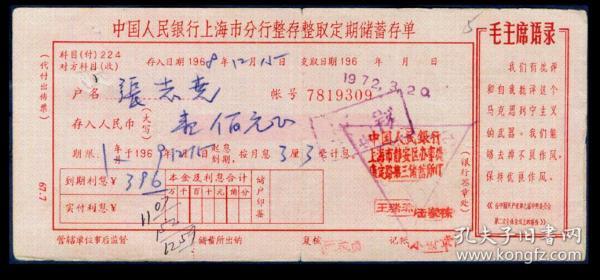 中国人民银行上海市分行整存整取定期储蓄存单
科目(付)224
对方科目(收)
存入日期1968年12月15日 支取日期196 年 月 日
1972.3.20
户名 張志堯 帐号 7819309
存入人民币(大写) 壹佰元正
期限1年于1969年12月15日起息到期,按月息3厘3毫计息
到期利息¥ 396
本金及利息合计
万千百十元角分
储户印鉴
实付利息¥
1107
152
1259
中国人民银行
上海市静安区办事处
(银行签章处)
管辖单位事后监督 储蓄所出纳 复核 记帐
(代付出传票)
67.7
毛主席语录
我们有批评
和自我批评这个
马克思列宁主义
的武器。我们能
够去掉不良作风,
保持优良作风。
孔夫子旧书网